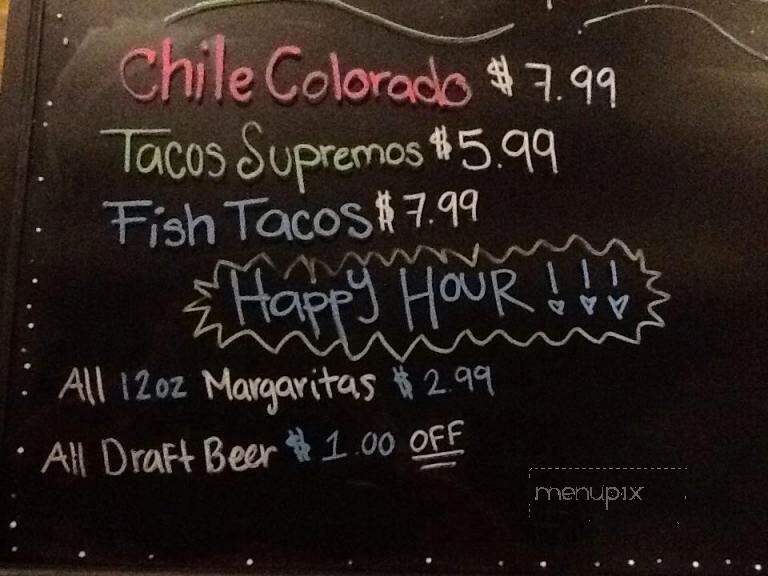 Chile Colorado $7.99
Tacos Supremos $5.99
Fish Tacos $7.99
Happy HOUR!!!
All 12oz Margaritas $2.99
All Draft Beer $1.00 OFF
menupix